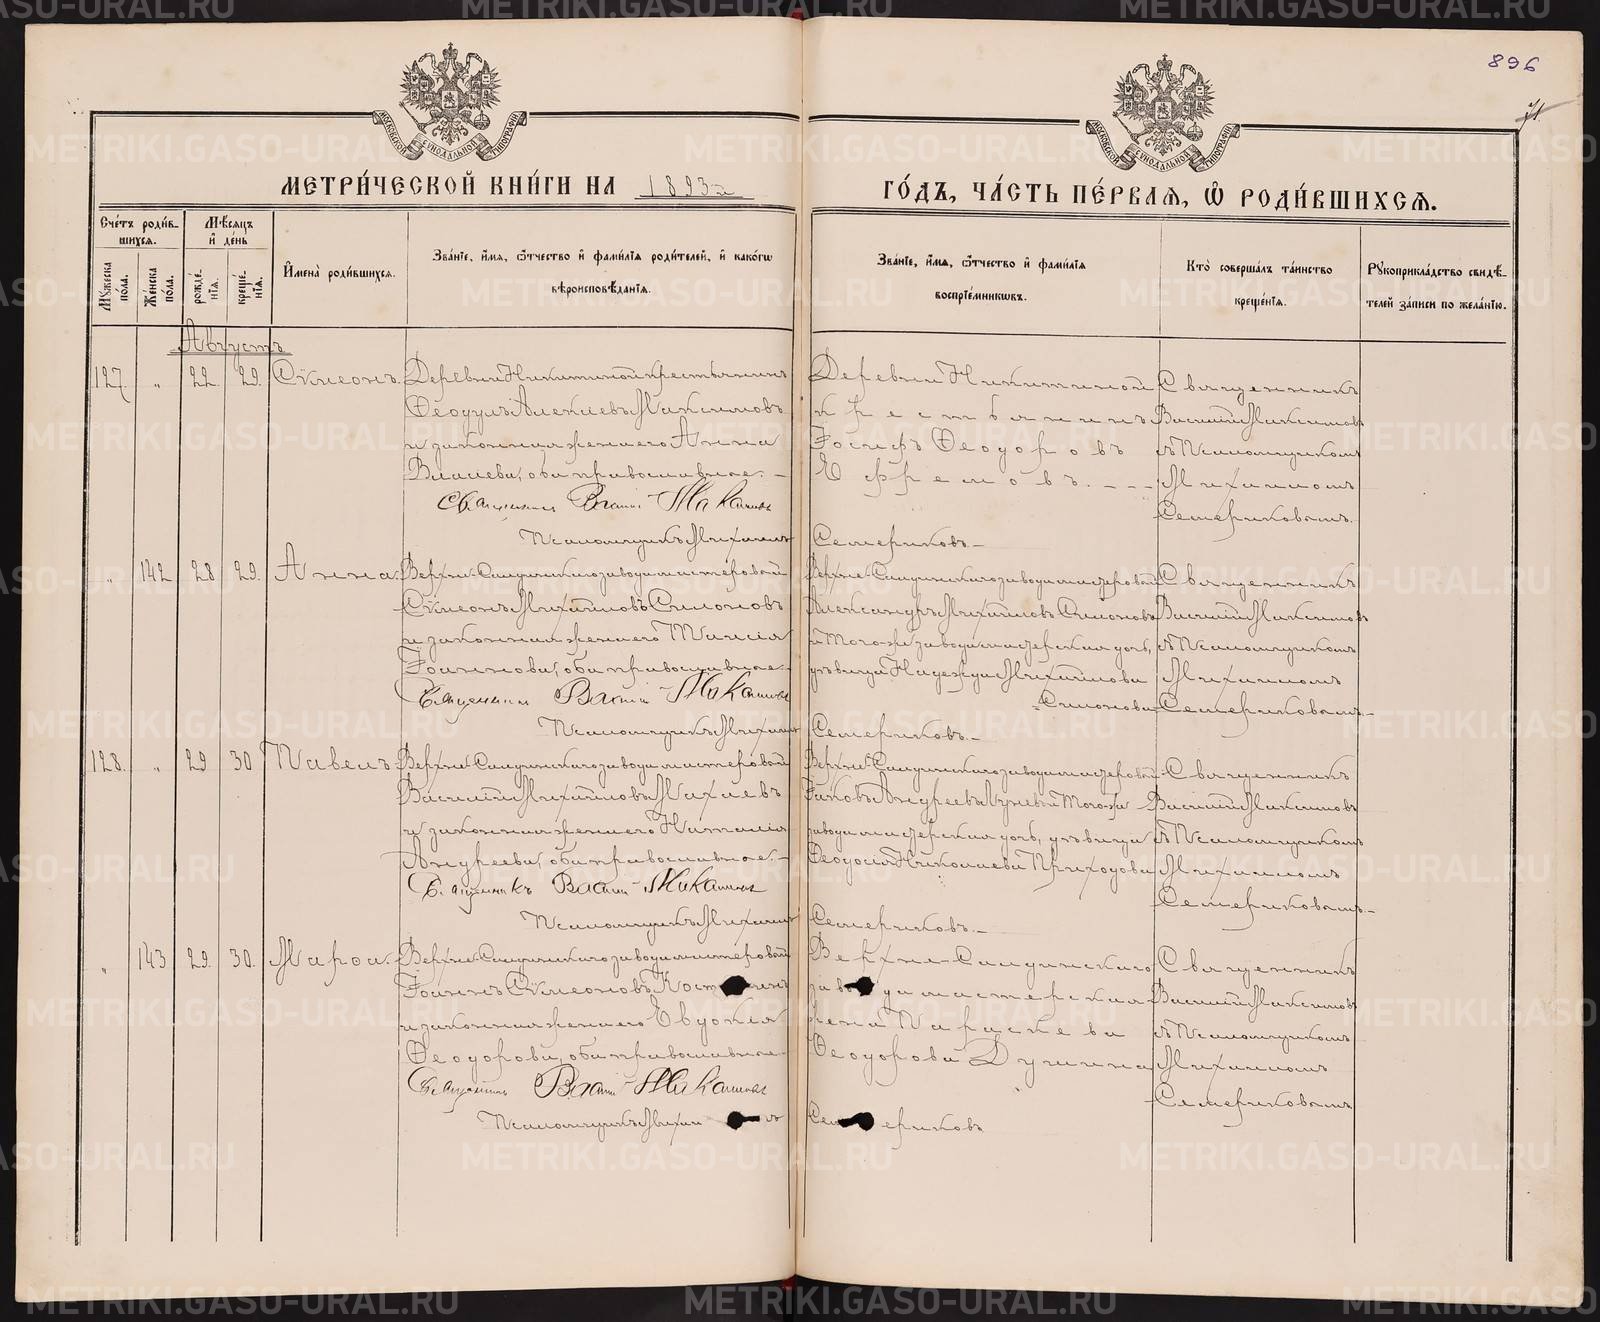 896
МЕТРИ́ЧЕСКОЙ КНИ́ГИ НА 1893й
ГО́ДЪ, ЧА́СТЬ ПЕ́РВАѦ, Ѽ РОДИ́ВШИХСѦ.
Сче́тъ роди́в-
шихсѧ.
Мѣ́сѧцъ
и҆ де́нь
Мꙋ́жеска по́ла.
Же́нска по́ла.
рожде́-
нїѧ.
креще́-
нїѧ.
И҆мена̀ роди́вшихсѧ.
Зва́нїе, и҆́мѧ, ѻ҆́тчество и҆ фами́лїѧ роди́телей, и҆ како́гѡ
вѣроисповѣ́данїѧ.
Зва́нїе, и҆́мѧ, ѻ҆́тчество и҆ фами́лїѧ
воспрїе́мникѡвъ.
Кто̀ соверша́лъ та́инство
креще́нїѧ.
Рꙋкоприкла́дство свидѣ́-
телей за́писи по жела́нїю.
Августъ
127. „ 22 29. Сѵмеонъ. Деревни Никитиной крестьянинъ
Ѳеодулъ Алексіевъ Максимовъ
и законная жена его Анна
Власіева, оба православные.
Священникъ Василій Макаминъ
Псаломщикъ Михаилъ Семериковъ.
Деревни Никитиной
крестьянинъ
Іосифъ Ѳеодоровъ
Ефремовъ.
Священникъ
Василій Максимовъ
съ Псаломщикомъ
Михаиломъ
Семериковымъ.
„ 142 28 29. Анна. Верхне-Салдинскаго завода мастеровой
Сѵмеонъ Михайловъ Симоновъ
и законная жена его Таисія
Іоаннова, оба православные.
Священникъ Василій
Псаломщикъ Михаилъ Семериковъ.
Верхне-Салдинскаго завода мастеровой
Александръ Михайловъ Симоновъ
и того-же завода мастерская дочь,
дѣвица Надежда Михайлова
Симонова
Священникъ
Василій Максимовъ
съ Псаломщикомъ
Михаиломъ
Семериковымъ.
128. „ 29 30 Павелъ. Верхне-Салдинскаго завода мастеровой
Василій Михайловъ
и законная жена его Наталія
Андреева, оба православные.
Священникъ Василій
Псаломщикъ Михаилъ Семериковъ.
Верхне-Салдинскаго завода мастеровой
Іаковъ Андреевъ и того-же
завода мастерская дочь, дѣвица
Ѳеодосія Николаева Приходова
Священникъ
Василій Максимовъ
съ Псаломщикомъ
Михаиломъ
Семериковымъ.
„ 143 29. 30. Марѳа. Верхне-Салдинскаго завода мастеровой
Іоаннъ Сѵмеоновъ
и законная жена его Евдокія
Ѳеодорова, оба православные.
Священникъ Василій
Псаломщикъ Михаилъ Семериковъ
Верхне-Салдинскаго
завода мастерская
жена Параскева
Ѳеодорова Душина
Священникъ
Василій Максимовъ
съ Псаломщикомъ
Михаиломъ
Семериковымъ.